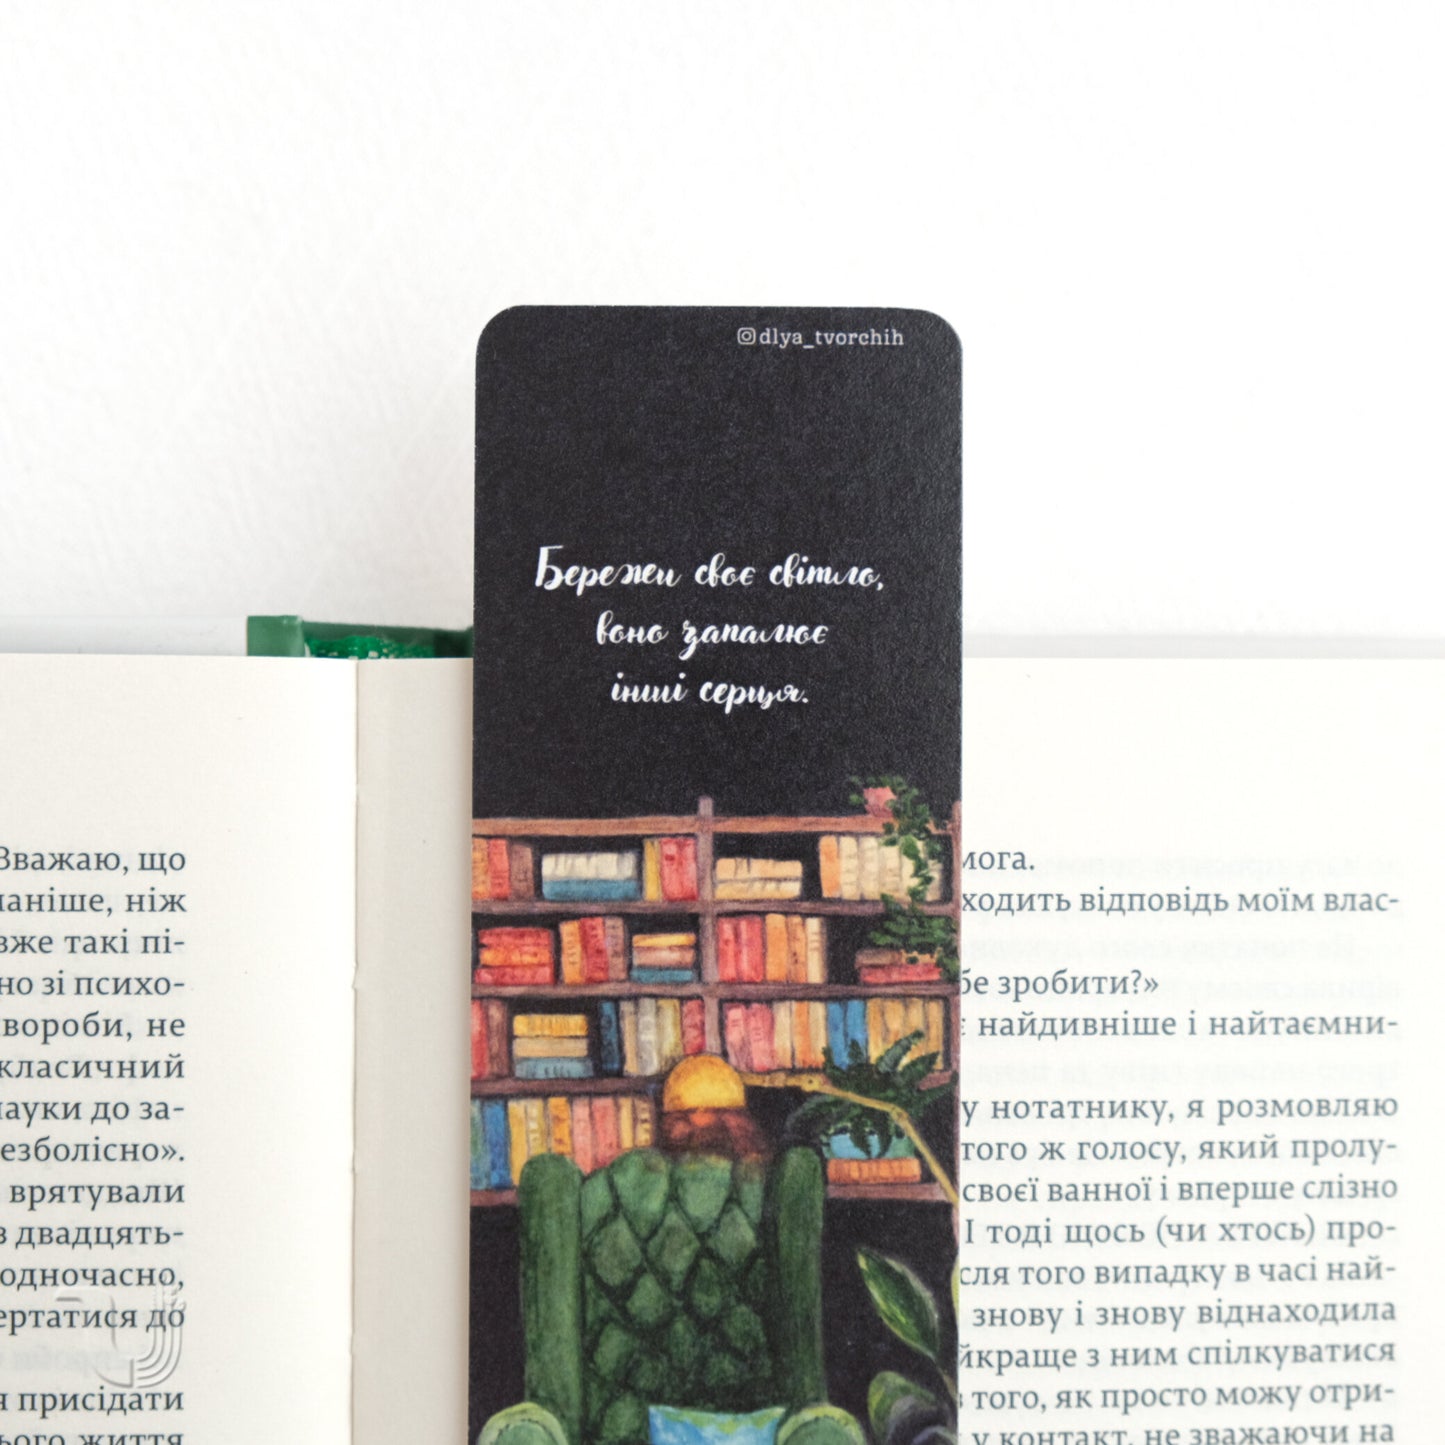 dlya_tvorchih
Бережи своє світло,
воно запалює
інші серця.
Зважаю, що
ніж
вже такі пі-
но зі психо-
не
класичний
науки до за-
врятували
з двадцять-
одночасно,
до
присідати
життя
відповідь моїм влас-
зробити?»
найдивніше і найтаємни-
у нотатнику, я розмовляю
того ж голосу, який пролу-
своєї ванної і вперше слізно
І тоді щось (чи хтось) про-
того випадку в часі най-
знову і знову віднаходила
з ним спілкуватися
з того, як просто можу отри-
у контакт, не зважаючи на